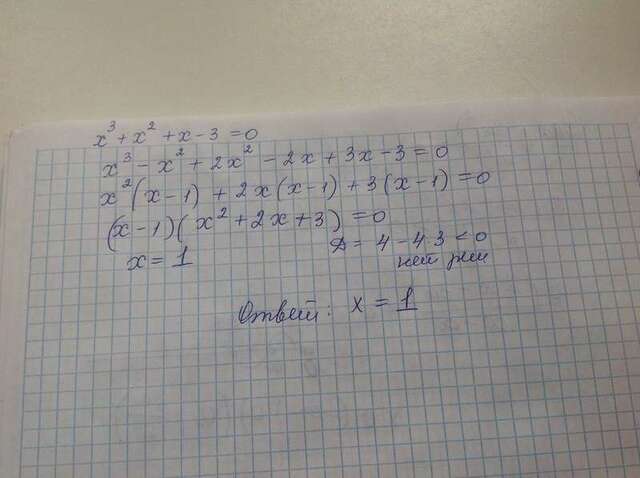 x³ + x² + x - 3 = 0
x³ - x² + 2x² - 2x + 3x - 3 = 0
x²(x-1) + 2x(x-1) + 3(x-1) = 0
(x-1)(x² + 2x + 3) = 0
x = 1
D = 4 - 4·3 < 0
нет реш
Ответ: x = 1